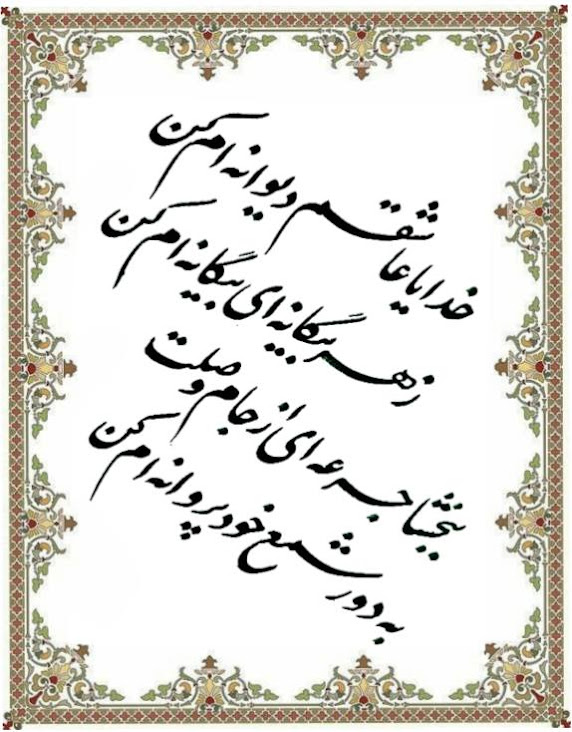 خدایا عاشقم دیوانه ام کن
زهر بیگانه ای بیگانه ام کن
ببخشا جرعه ای از جام وصلت
به دور شمع خود پروانه ام کن